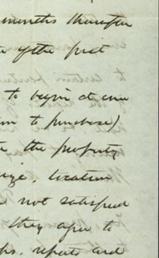 months thereafter
of the first
to begin at once
to purchase)
the property
location
not satisfied
they agree to
repairs and